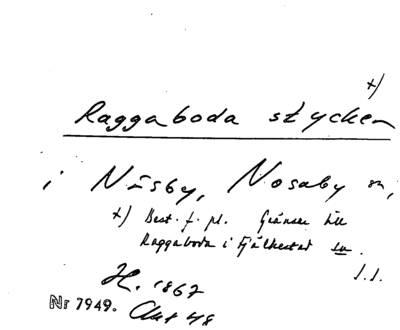 x)
Raggaboda stycken
i Näsby, Nosaby sn,
x) Best. f. pl. Gränsar till
Raggaboda i Fjälkestad sn.
H. 1867
Nr 7949. Akt 48